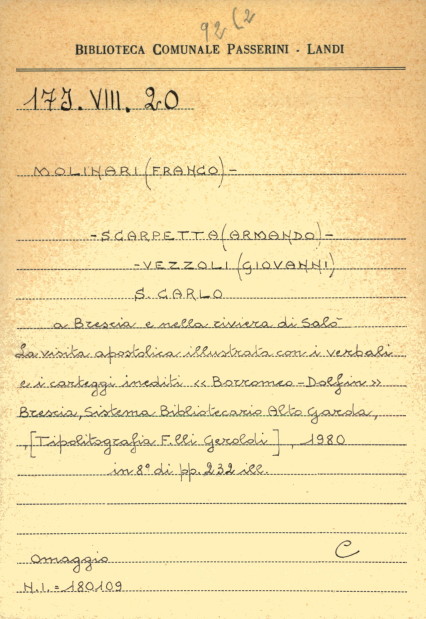 92 (2
BIBLIOTECA COMUNALE PASSERINI - LANDI
17J. VIII. 20
MOLINARI (FRANCO) -
- SCARPETTA (ARMANDO) -
- VEZZOLI (GIOVANNI)
S. CARLO
a Brescia e nella riviera di Salò
La visita apostolica illustrata con i verbali
e i carteggi inediti « Borromeo - Dolfin »
Brescia, Sistema Bibliotecario Alto Garda,
,[Tipolitografia F.lli Geroldi] , 1980
in 8° di pp. 232 ill.
Omaggio C
N.I. = 180109